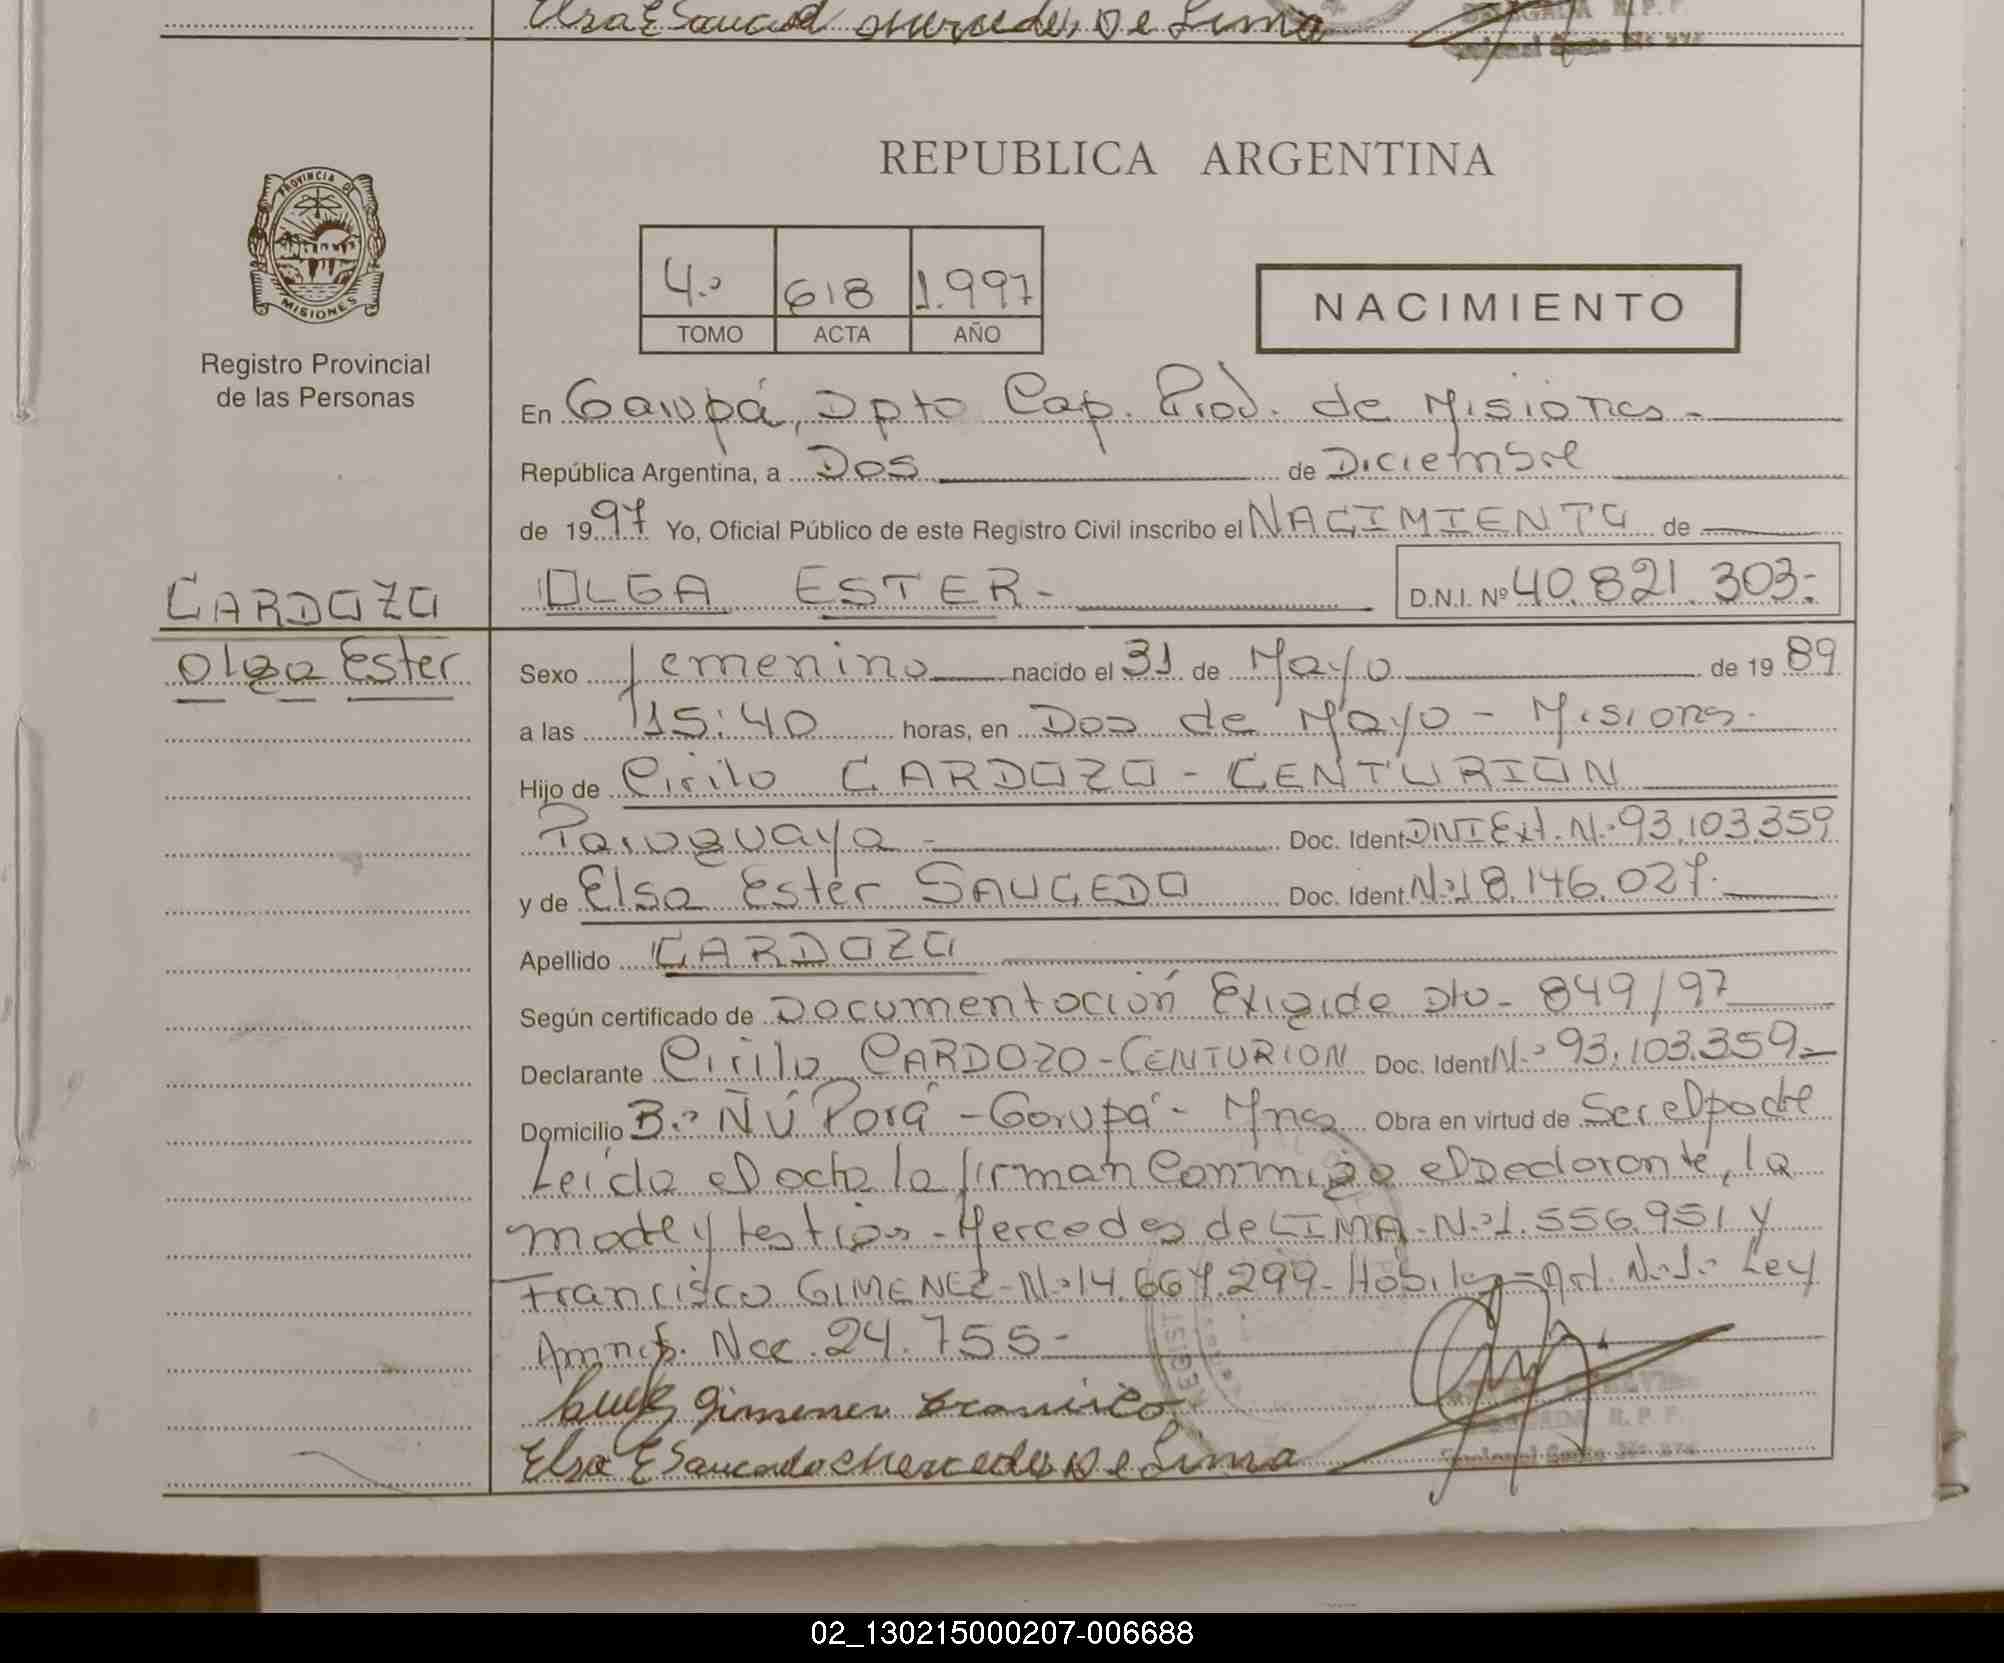 Elsa E Saucedo Mercedes De Lima
DELEGADA R.P.P.
REPUBLICA ARGENTINA
PROVINCIA DE
MISIONES
Registro Provincial
de las Personas
4.º 618 1.997
TOMO ACTA AÑO
NACIMIENTO
En Garupá, Dpto Cap. Prov. de Misiones -
República Argentina, a Dos de Diciembre
de 1997 Yo, Oficial Público de este Registro Civil inscribo el NACIMIENTO de
CARDOZO
Olga Ester
OLGA ESTER- D.N.I. Nº 40.821.303-
Sexo femenino nacido el 31 de Mayo de 1989
a las 15:40 horas, en Dos de Mayo - Misiones.
Hijo de Cirilo CARDOZO - CENTURION
Paraguayo - Doc. Ident DNI Ext. N.º 93.103.359
y de Elsa Ester SAUCEDO Doc. Ident. N.º 18.146.027.
Apellido CARDOZO
Según certificado de Documentación Exigida Dto - 849/97
Declarante Cirilo CARDOZO-CENTURION Doc. Ident N.º 93.103.359-
Domicilio B.º ÑÚ Porá - Garupá - Mnes Obra en virtud de Ser el padre
Leída el acta la firman Conmigo el Declarante, la
madre y testigos - Mercedes de LIMA - N.º 1.556.951 y
Francisco GIMENEZ - N.º 14.667.299 - Hábiles - Art. N.º 1.º Ley
Amnst. Nac. 24.755-
Gimenez Francisco
Elsa E Saucedo Mercedes De Lima
R.P.P.
02_130215000207-006688